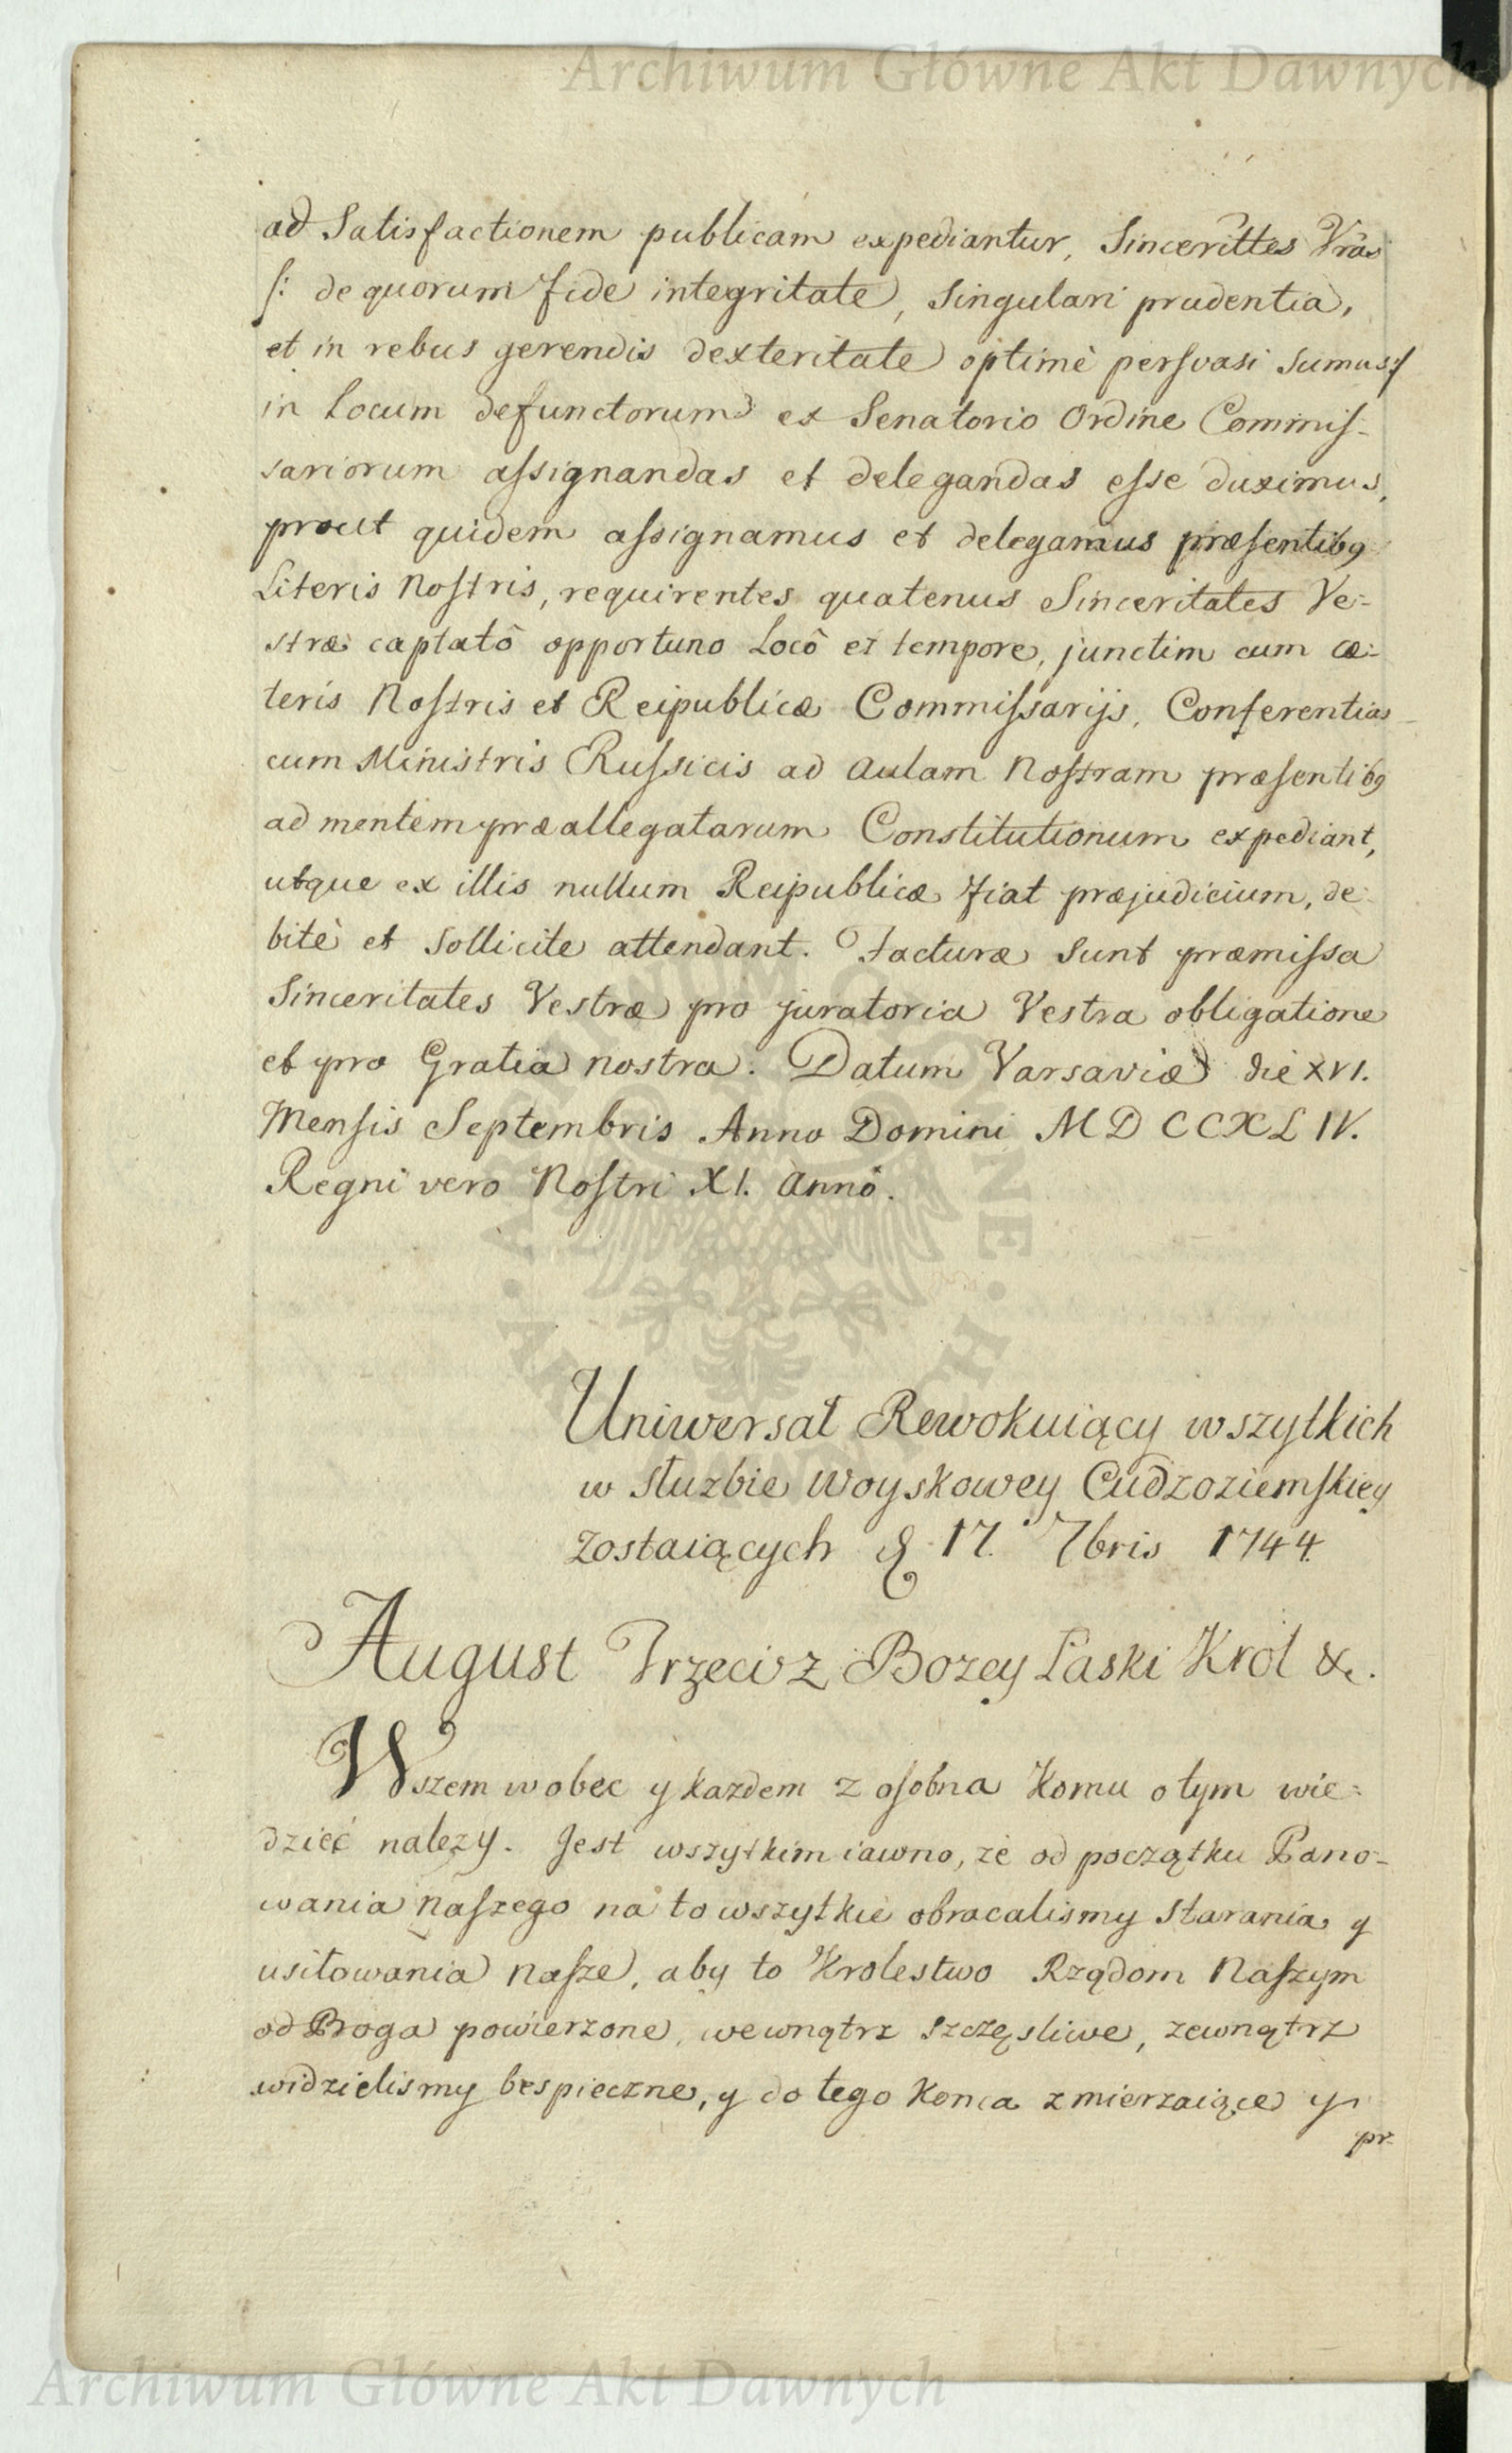 Archiwum Główne Akt Dawnych
ad Satisfactionem publicam expediantur, Sincerittes Vras
/: de quorum fide integritate, Singulari prudentia,
et in rebus gerendis dexteritate optimè persvasi sumus:/
in Locum defunctorum ex Senatorio Ordine Commis-
sariorum assignandas et delegandas esse duximus,
prout quidem assignamus et delegamus præsentib9
Literis Nostris, requirentes quatenus Sinceritates Ve-
stræ captatô opportuno Locô et tempore, junctim cum cæ-
teris Nostris et Reipublicæ Commissarijs, Conferentias
cum Ministris Russicis ad Aulam Nostram præsentib9
ad mentem præallegatarum Constitutionum expediant,
utque ex illis nullum Reipublicæ fiat præjudicium, de-
bitè et sollicite attendant. Facturæ sunt præmissa
Sinceritates Vestræ pro juratoria Vestra obligatione
et pro Gratia nostra. Datum Varsaviæ die XVI.
Mensis Septembris Anno Domini MDCCXLIV.
Regni vero Nostri XI. Annô.
Uniwersał Rewokuiący wszytkich
w służbie Woyskowey Cudzoziemskiey
zostaiących d. 17. 7bris 1744
August Trzeci z Bozey Łaski Krol &c.
Wszem wobec y kazdem z osobna Komu o tym wie-
dzieć nalezy. Jest wszytkim iawno, ze od początku Pano-
wania Naszego na to wszytkie obracalismy starania y
usiłowania Nasze, aby to Krolestwo Rządom Naszym
od Boga powierzone, wewnątrz szczęsliwe, zewnątrz
widzielismy bespieczne, y do tego Konca zmierzaiące y
pr-
Archiwum Główne Akt Dawnych